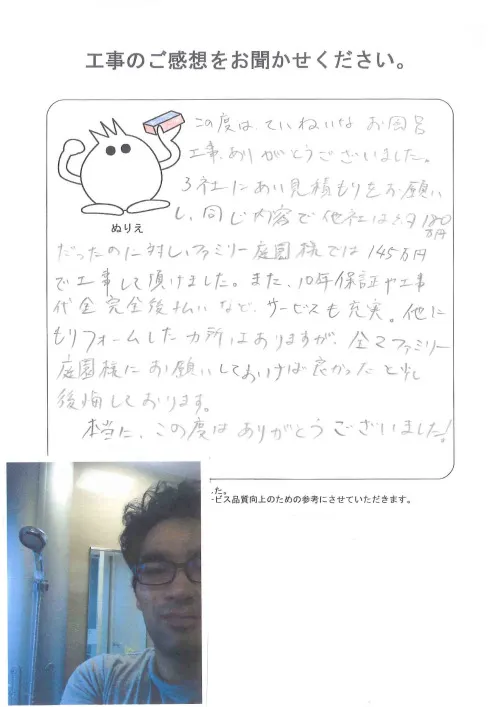 工事のご感想をお聞かせください。
この度は、ていねいなお風呂
工事、ありがとうございました。
3社にあい見積もりをお願い
し、同じ内容で他社は約180
万円
ぬりえ
だったのに対しファミリー庭園様では145万円
で工事して頂けました。また、10年保証や工事
代金完全後払いなど、サービスも充実。他に
もリフォームしたカ所はありますが、全てファミリー
庭園様にお願いしておけば良かったと少し
後悔しております。
本当に、この度はありがとうございました!
た。
ービス品質向上のための参考にさせていただきます。